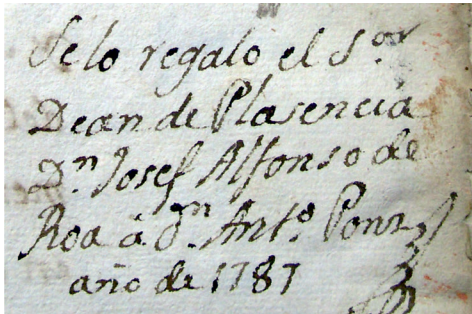 Se lo regalo el S.or
Dean de Plasencia
D.n Josef Alfonso de
Roa á D.n Ant.o Ponz
año de 1787